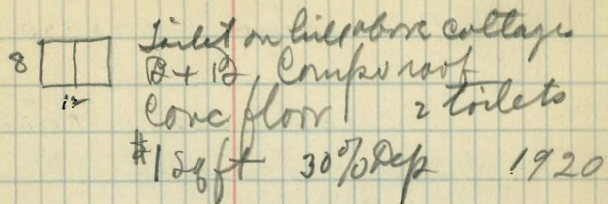 Toilet on hill above cottages
8 B + B Compo roof
12 Conc floor 2 toilets
$1 Sq ft 30% Dep 1920